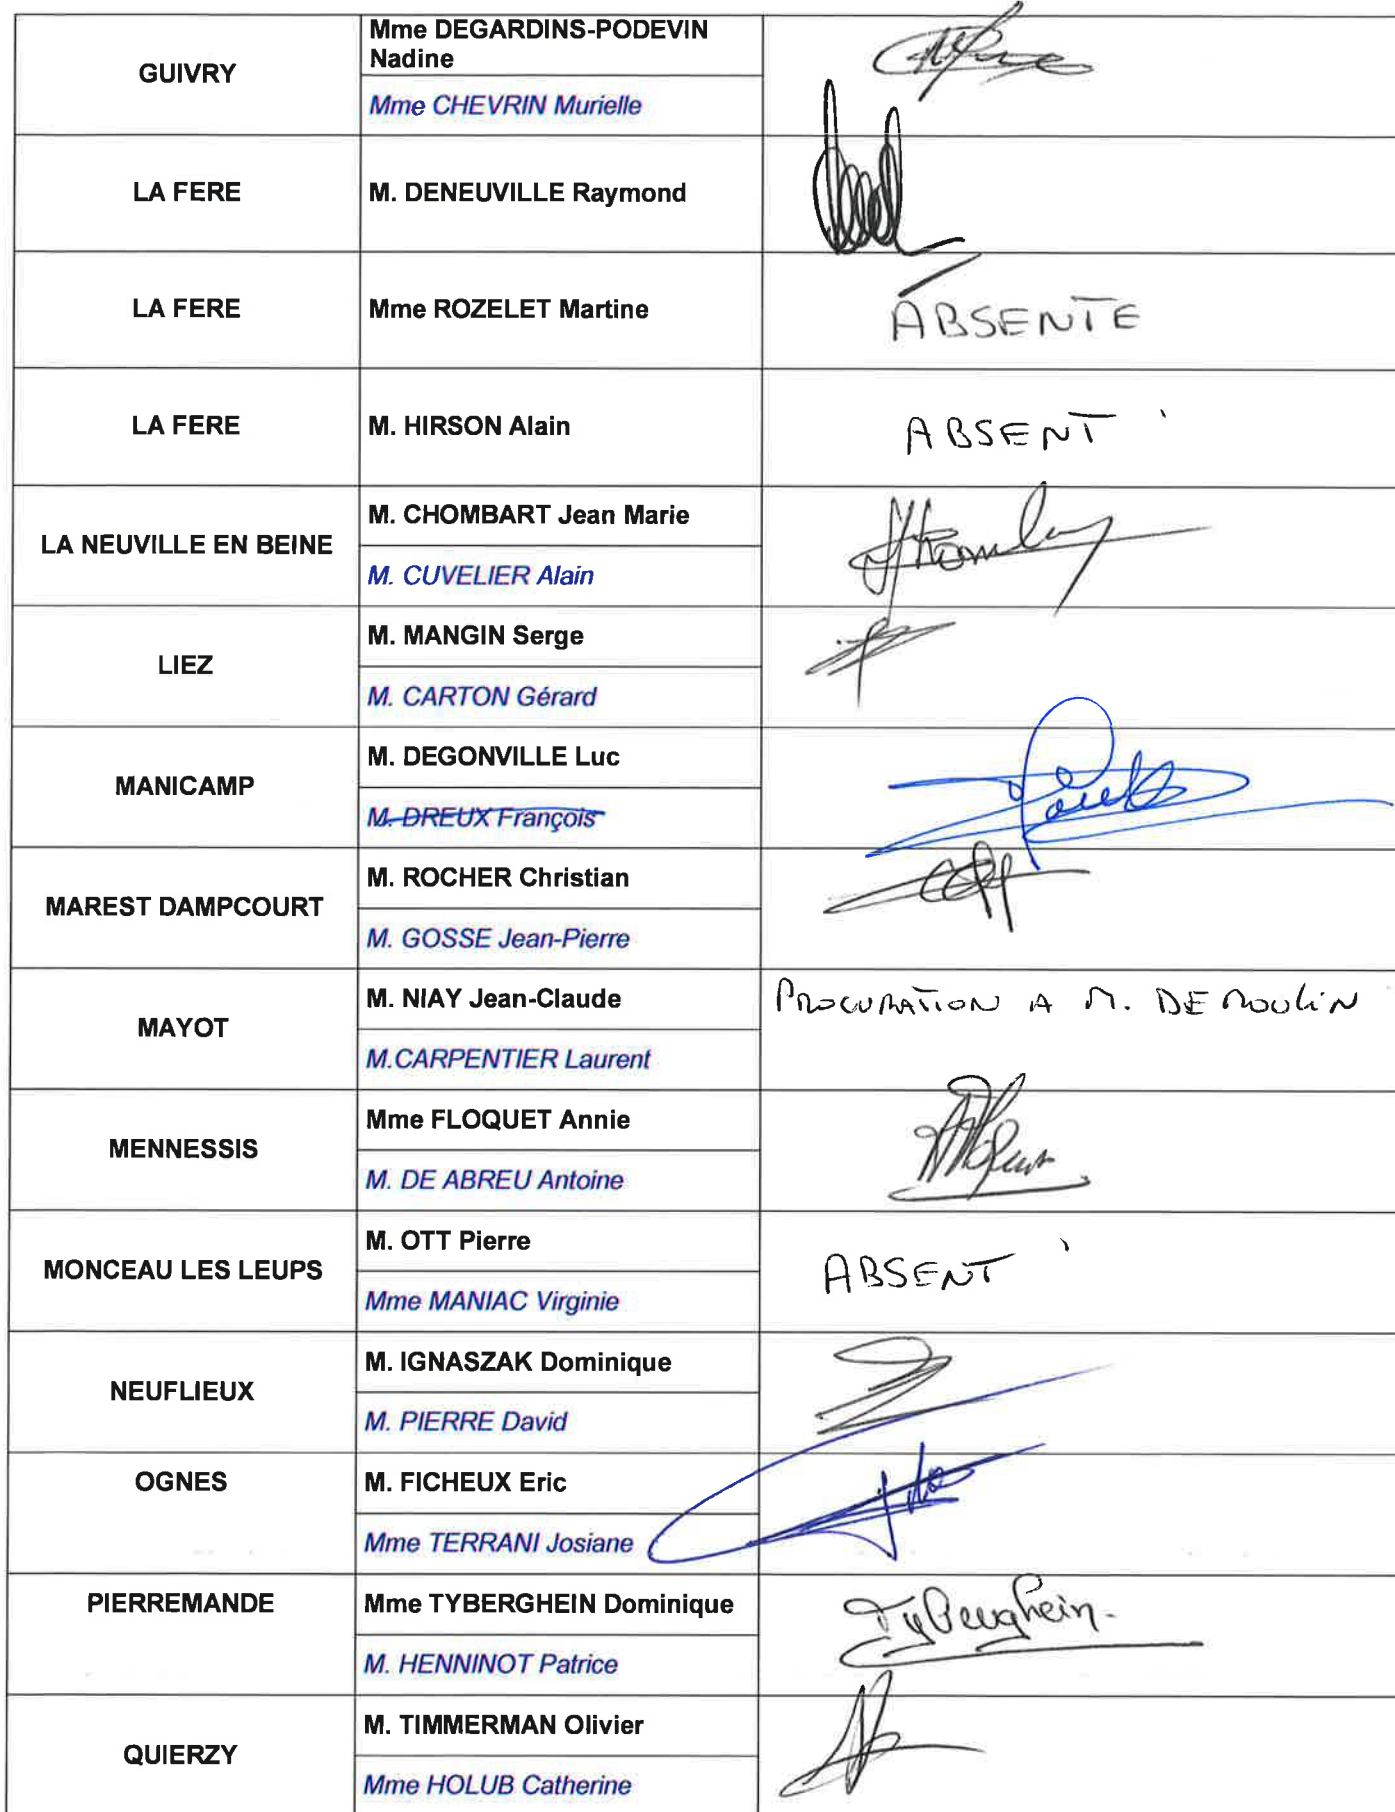 GUIVRY
Mme DEGARDINS-PODEVIN
Nadine
Mme CHEVRIN Murielle
LA FERE
M. DENEUVILLE Raymond
LA FERE
Mme ROZELET Martine
ABSENTE
LA FERE
M. HIRSON Alain
ABSENT
LA NEUVILLE EN BEINE
M. CHOMBART Jean Marie
M. CUVELIER Alain
LIEZ
M. MANGIN Serge
M. CARTON Gérard
MANICAMP
M. DEGONVILLE Luc
M. DREUX François
MAREST DAMPCOURT
M. ROCHER Christian
M. GOSSE Jean-Pierre
MAYOT
M. NIAY Jean-Claude
M.CARPENTIER Laurent
PROCURATION A M. DEMOULIN
MENNESSIS
Mme FLOQUET Annie
M. DE ABREU Antoine
MONCEAU LES LEUPS
M. OTT Pierre
Mme MANIAC Virginie
ABSENT
NEUFLIEUX
M. IGNASZAK Dominique
M. PIERRE David
OGNES
M. FICHEUX Eric
Mme TERRANI Josiane
PIERREMANDE
Mme TYBERGHEIN Dominique
M. HENNINOT Patrice
Tyberghein.
QUIERZY
M. TIMMERMAN Olivier
Mme HOLUB Catherine